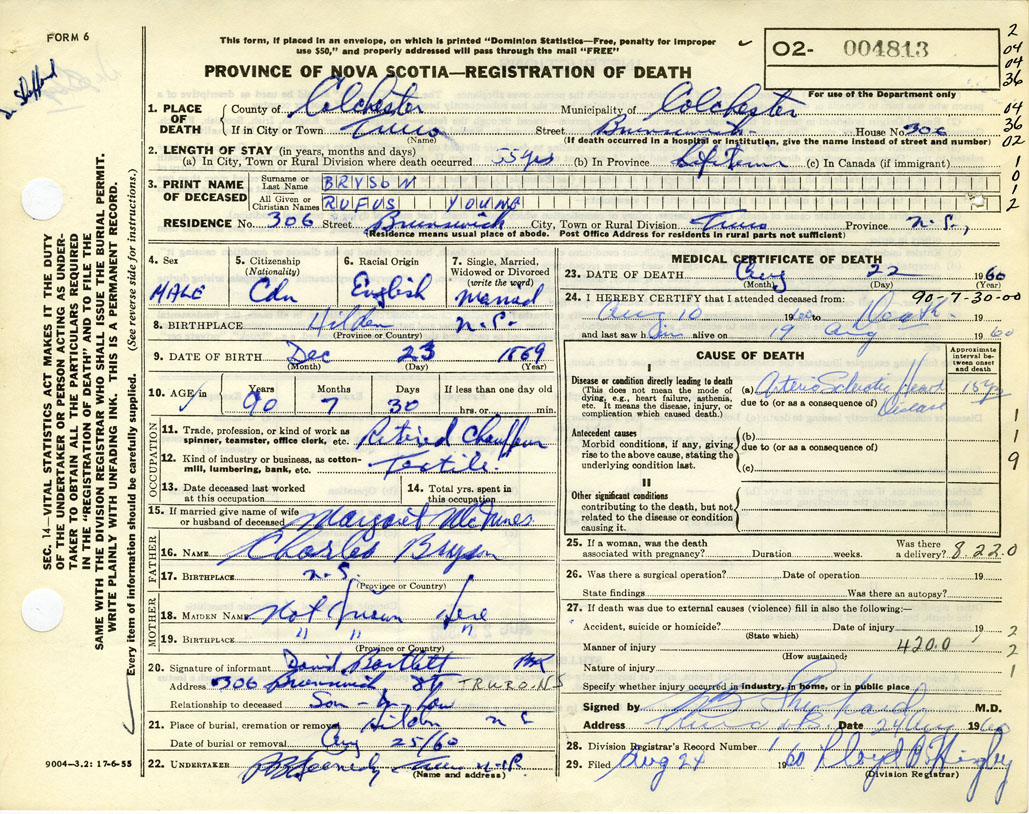 FORM 6
This form, if placed in an envelope, on which is printed "Dominion Statistics—Free, penalty for improper
use $50," and properly addressed will pass through the mail "FREE"
O2- 004813
For use of the Department only
PROVINCE OF NOVA SCOTIA—REGISTRATION OF DEATH
2
04
04
36
04
36
02
1
0
1
2
1. PLACE OF DEATH
County of Colchester Municipality of Colchester
If in City or Town Truro Street Brunswick House No. 306
(Name) (If death occurred in a hospital or institution, give the name instead of street and number)
2. LENGTH OF STAY (in years, months and days)
(a) In City, Town or Rural Division where death occurred 55 yrs (b) In Province Lifetime (c) In Canada (if immigrant)
3. PRINT NAME OF DECEASED
Surname or Last Name BRYSON
All Given or Christian Names RUFUS YOUNG
RESIDENCE No. 306 Street Brunswick City, Town or Rural Division Truro Province N.S.,
(Residence means usual place of abode. Post Office Address for residents in rural parts not sufficient)
4. Sex
MALE
5. Citizenship
(Nationality)
Cdn
6. Racial Origin
English
7. Single, Married,
Widowed or Divorced
(write the word)
Married
8. BIRTHPLACE Hilden N.S.
(Province or Country)
9. DATE OF BIRTH Dec 23 1869
(Month) (Day) (Year)
10. AGE Years Months Days If less than one day old
90 7 30 hrs. or min.
OCCUPATION
11. Trade, profession, or kind of work as
spinner, teamster, office clerk, etc. Retired Chauffeur
12. Kind of industry or business, as cotton-
mill, lumbering, bank, etc. Textile.
13. Date deceased last worked
at this occupation
14. Total yrs. spent in
this occupation
15. If married give name of wife
or husband of deceased Margaret McInnes
FATHER
16. NAME Charles Bryson
17. BIRTHPLACE N.S.
(Province or Country)
MOTHER
18. MAIDEN NAME Not Known Here
19. BIRTHPLACE " " "
(Province or Country)
20. Signature of informant David Bartlett
Address 306 Brunswick St TRURO NS
Relationship to deceased Son-in-law
21. Place of burial, cremation or removal Hilden N S
Date of burial or removal Aug 25/60
22. UNDERTAKER Truro N.S.
(Name and address)
MEDICAL CERTIFICATE OF DEATH
23. DATE OF DEATH Aug 22 1960
(Month) (Day) (Year)
90-7-30-00
24. I HEREBY CERTIFY that I attended deceased from:
Aug 10 1960 to Death 19
and last saw him alive on 19 Aug 1960
CAUSE OF DEATH
Approximate
interval be-
tween onset
and death
I
Disease or condition directly leading to death
(This does not mean the mode of
dying, e.g., heart failure, asthenia,
etc. It means the disease, injury, or
complication which caused death.)
(a) Arterio Sclerotic Heart 15 yrs
due to (or as a consequence of) Disease
Antecedent causes
Morbid conditions, if any, giving
rise to the above cause, stating the
underlying condition last.
(b)
due to (or as a consequence of)
(c)
1
1
9
II
Other significant conditions
contributing to the death, but not
related to the disease or condition
causing it.
25. If a woman, was the death
associated with pregnancy? Duration weeks. Was there
a delivery? 8.220
26. Was there a surgical operation? Date of operation 19
State findings Was there an autopsy?
27. If death was due to external causes (violence) fill in also the following:—
Accident, suicide or homicide? Date of injury 19
(State which)
Manner of injury 420.0
(How sustained)
Nature of injury
2
2
1
Specify whether injury occurred in industry, in home, or in public place
Signed by M.D.
Address Truro N.S. Date 24 Aug 1960
28. Division Registrar's Record Number
29. Filed Aug 24 1960
(Division Registrar)
SEC. 14—VITAL STATISTICS ACT MAKES IT THE DUTY
OF THE UNDERTAKER OR PERSON ACTING AS UNDER-
TAKER TO OBTAIN ALL THE PARTICULARS REQUIRED
IN THE "REGISTRATION OF DEATH" AND TO FILE THE
SAME WITH THE DIVISION REGISTRAR WHO SHALL ISSUE THE BURIAL PERMIT.
WRITE PLAINLY WITH UNFADING INK. THIS IS A PERMANENT RECORD.
Every item of information should be carefully supplied. (See reverse side for instructions.)
9004—3.2: 17-6-55